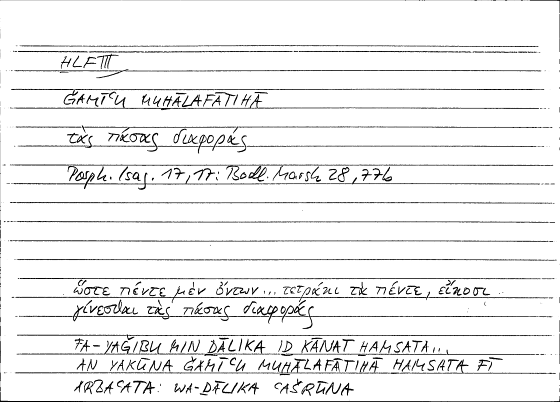 HLF III
ǦAMĪꜤU MUḪĀLAFĀTIHĀ
τὰς πάσας διαφοράς
Porph. Isag. 17,17: Bodl. Marsh 28,77b
ὥστε πέντε μὲν ὄντων... τετράκι τὰ πέντε, εἴκοσι
γίνεσθαι τὰς πάσας διαφοράς
FA-YAǦIBU MIN ḎĀLIKA IḎ KĀNAT ḪAMSATA...
AN YAKŪNA ǦAMĪꜤU MUḪĀLAFĀTIHĀ ḪAMSATA FĪ
ARBAꜤATA: WA-ḎĀLIKA ꜤAŠRŪNA